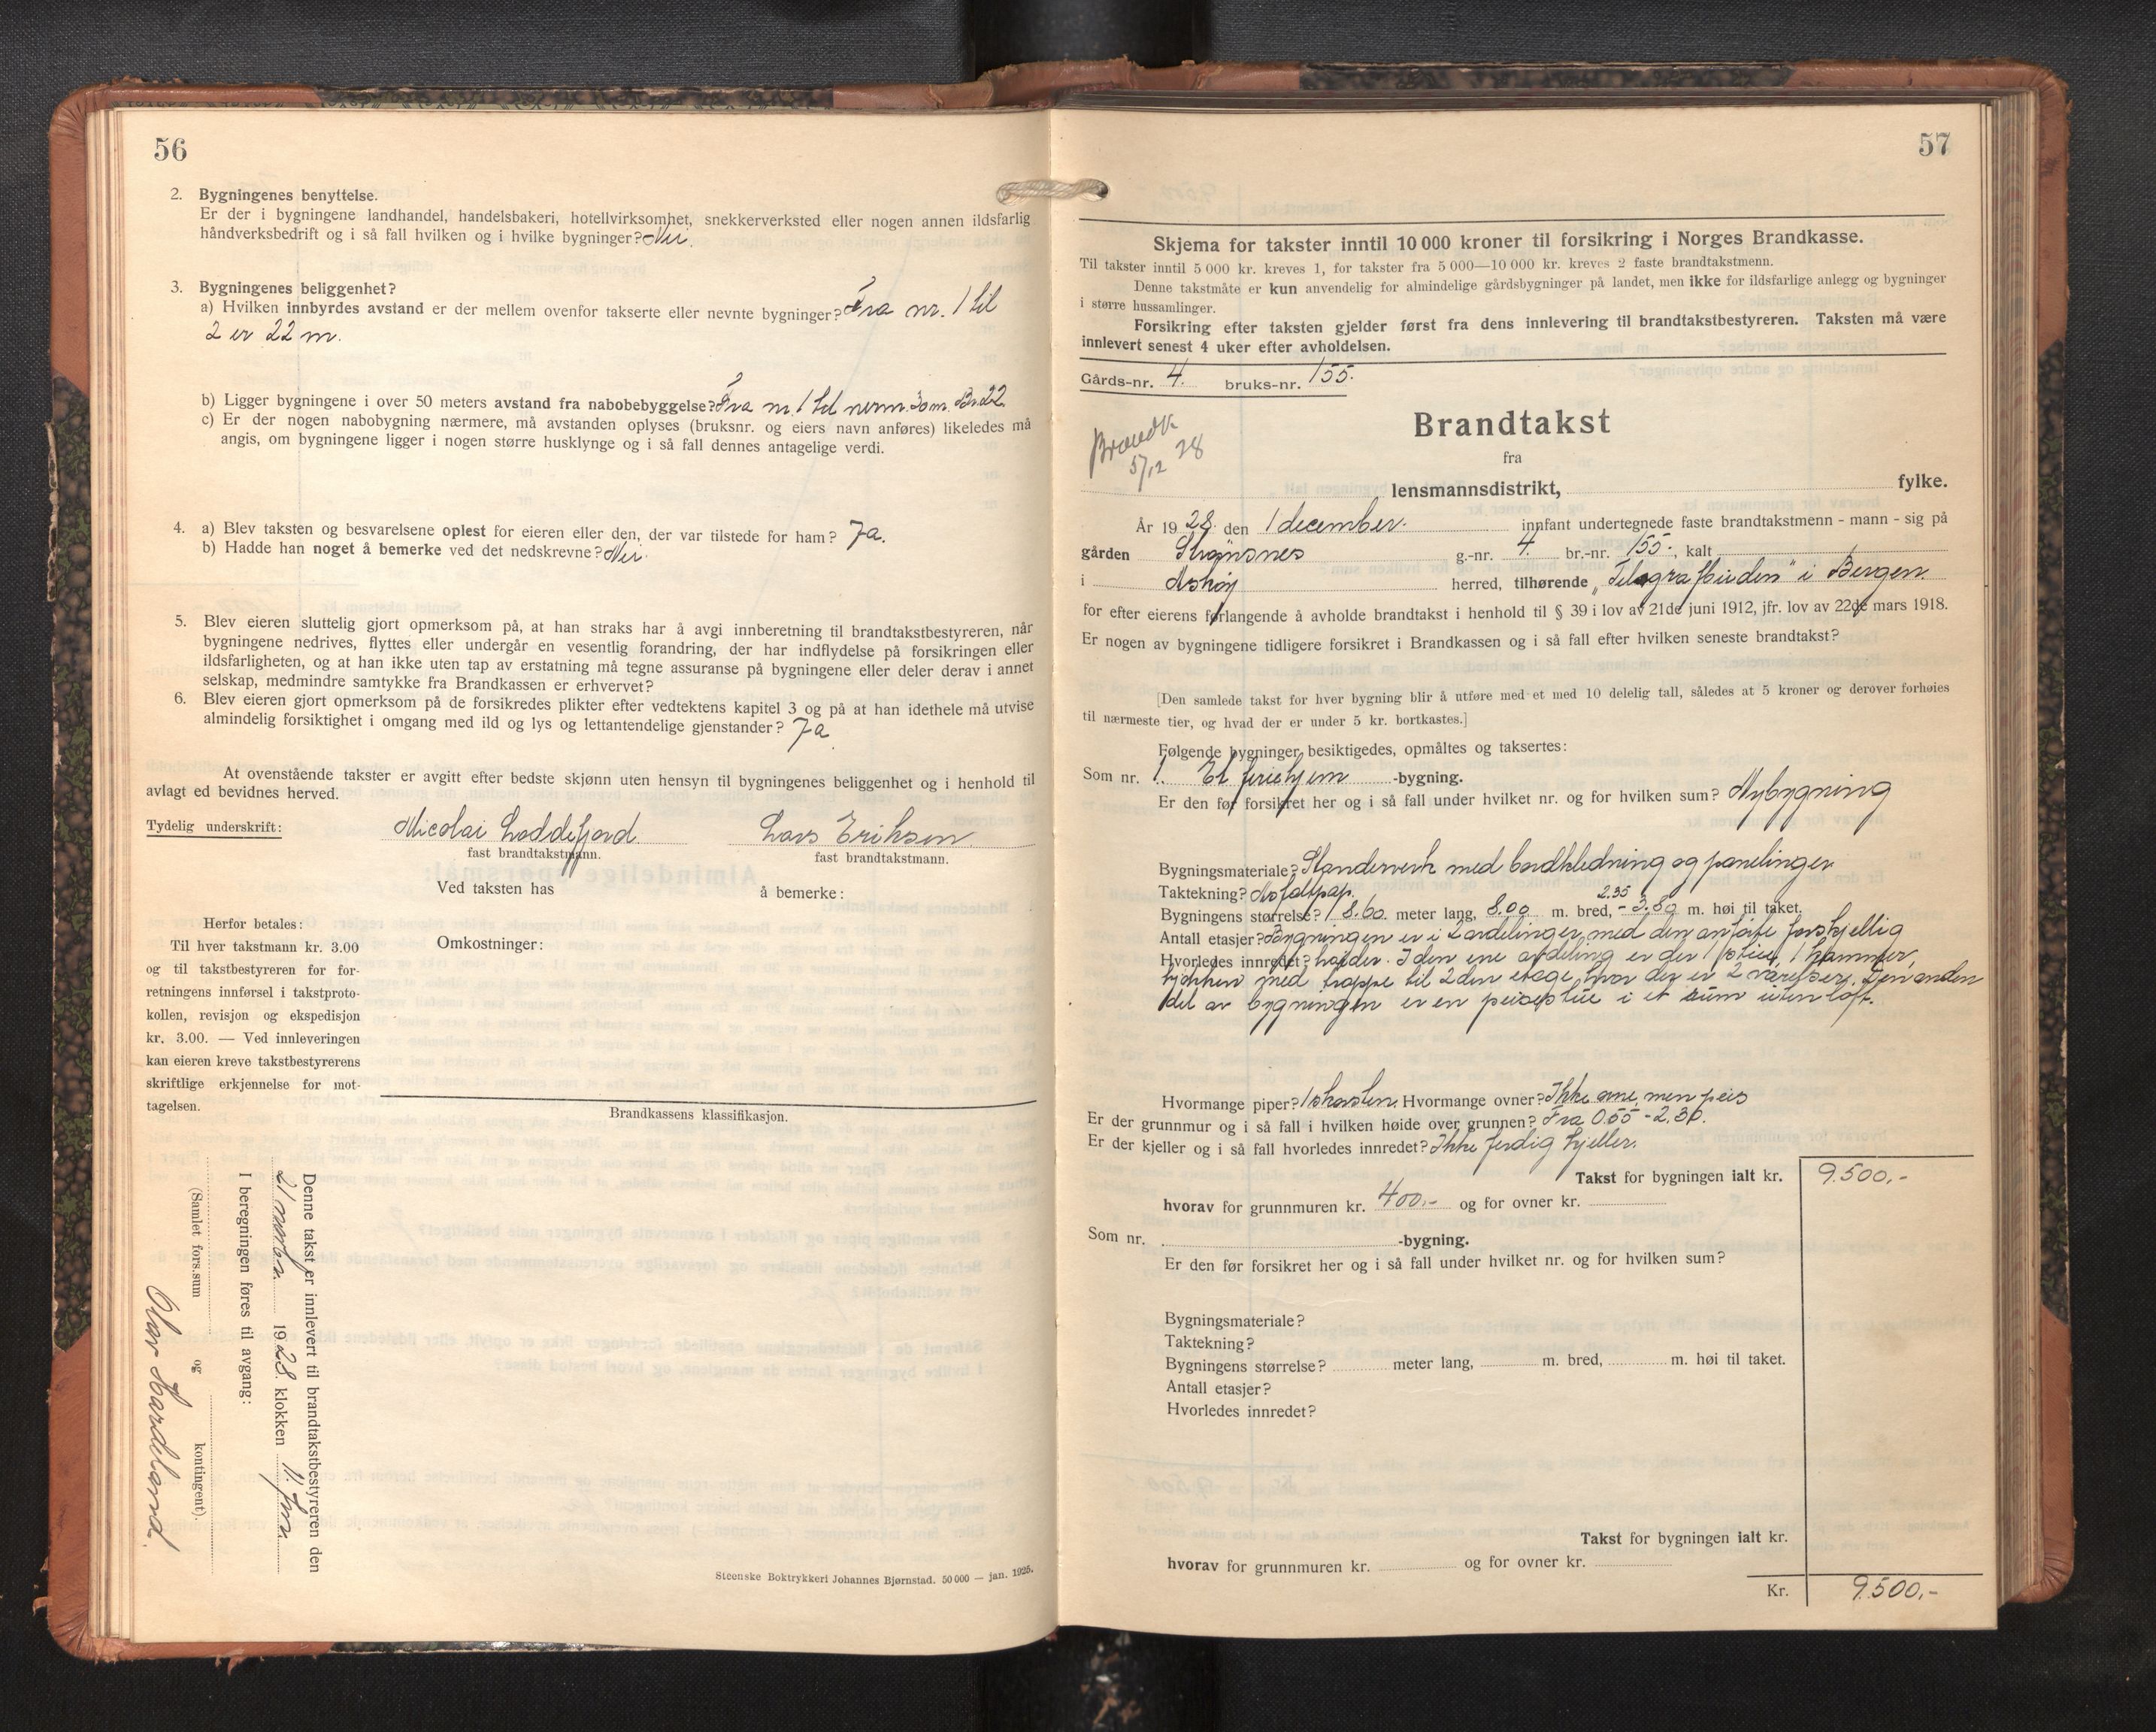 56
2. Bygningenes benyttelse.
Er der i bygningene landhandel, handelsbakeri, hotellvirksomhet, snekkerverksted eller nogen annen ildsfarlig
håndverksbedrift og i så fall hvilken og i hvilke bygninger? Nei.
3. Bygningenes beliggenhet?
a) Hvilken innbyrdes avstand er der mellem ovenfor takserte eller nevnte bygninger? Fra nr. 1 til
2 er 22 m.
b) Ligger bygningene i over 50 meters avstand fra nabobebyggelse? Fra nr. 1 til nerm. 30 m. Br. 22
c) Er der nogen nabobygning nærmere, må avstanden oplyses (bruksnr. og eiers navn anføres) likeledes må
angis, om bygningene ligger i nogen større husklynge og i så fall dennes antagelige verdi.
4. a) Blev taksten og besvarelsene oplest for eieren eller den, der var tilstede for ham? Ja.
b) Hadde han noget å bemerke ved det nedskrevne? Nei.
5. Blev eieren sluttelig gjort opmerksom på, at han straks har å avgi innberetning til brandtakstbestyreren, når
bygningene nedrives, flyttes eller undergår en vesentlig forandring, der har indflydelse på forsikringen eller
ildsfarligheten, og at han ikke uten tap av erstatning må tegne assuranse på bygningene eller deler derav i annet
selskap, medmindre samtykke fra Brandkassen er erhvervet?
6. Blev eieren gjort opmerksom på de forsikredes plikter efter vedtektens kapitel 3 og på at han idethele må utvise
almindelig forsiktighet i omgang med ild og lys og lettantendelige gjenstander? Ja
At ovenstående takster er avgitt efter bedste skjønn uten hensyn til bygningenes beliggenhet og i henhold til
avlagt ed bevidnes herved.
Tydelig underskrift: Nicolai Loddefjord. Lars Eriksen.
fast brandtakstmann. fast brandtakstmann.
Ved taksten has å bemerke:
Herfor betales:
Til hver takstmann kr. 3.00
og til takstbestyreren for for-
retningens innførsel i takstproto-
kollen, revisjon og ekspedisjon
kr. 3.00. — Ved innleveringen
kan eieren kreve takstbestyrerens
skriftlige erkjennelse for mot-
tagelsen.
Omkostninger:
Brandkassens klassifikasjon.
Denne takst er innlevert til brandtakstbestyreren den
21 1928. klokken 11
I beregningen føres til avgang:
(Samlet fors.sum og kontingent).
Olav Hardeland.
Steenske Boktrykkeri Johannes Bjørnstad. 50 000 — jan. 1925.
57
Skjema for takster inntil 10 000 kroner til forsikring i Norges Brandkasse.
Til takster inntil 5 000 kr. kreves 1, for takster fra 5 000—10 000 kr. kreves 2 faste brandtakstmenn.
Denne takstmåte er kun anvendelig for almindelige gårdsbygninger på landet, men ikke for ildsfarlige anlegg og bygninger
i større hussamlinger.
Forsikring efter taksten gjelder først fra dens innlevering til brandtakstbestyreren. Taksten må være
innlevert senest 4 uker efter avholdelsen.
Gårds-nr. 4. bruks-nr. 155.
Brandtakst
Brandk
5/12 28
fra
lensmannsdistrikt, fylke.
År 1928. den 1 december. innfant undertegnede faste brandtakstmenn - mann - sig på
gården Strømsnes g.-nr. 4. br.-nr. 155., kalt
i Askøy herred, tilhørende i Bergen.
for efter eierens forlangende å avholde brandtakst i henhold til § 39 i lov av 21de juni 1912, jfr. lov av 22de mars 1918.
Er nogen av bygningene tidligere forsikret i Brandkassen og i så fall efter hvilken seneste brandtakst?
[Den samlede takst for hver bygning blir å utføre med et med 10 delelig tall, således at 5 kroner og derover forhøies
til nærmeste tier, og hvad der er under 5 kr. bortkastes.]
Følgende bygninger besiktigedes, opmåltes og taksertes:
Som nr. 1. Et feriehjem -bygning.
Er den før forsikret her og i så fall under hvilket nr. og for hvilken sum? Nybygning
Bygningsmateriale? Standerverk med bordkledning og panelinger
Taktekning? Asfaltpap.
Bygningens størrelse? 18.60. meter lang, 8.00 m. bred, 2.35 - 3.80 m. høi til taket.
Antall etasjer? Bygningen er i 2 avdelinger med den anførte forskjellig
Hvorledes innredet? høider. I den ene avdeling er der 1 stue, 1 kammer,
kjøkken med trappe til 2den etage, hvor der er 2 værelser. Den anden
del av bygningen er en peisestue i et rum uten loft.
Hvormange piper? 1 skorsten. Hvormange ovner? Ikke ovne, men peis
Er der grunnmur og i så fall i hvilken høide over grunnen? Fra 0.55 - 2.30.
Er der kjeller og i så fall hvorledes innredet? Ikke ferdig kjeller.
Takst for bygningen ialt kr. 9.500,-
hvorav for grunnmuren kr. 400,- og for ovner kr.
Som nr. -bygning.
Er den før forsikret her og i så fall under hvilket nr. og for hvilken sum?
Bygningsmateriale?
Taktekning?
Bygningens størrelse? meter lang, m. bred, m. høi til taket.
Antall etasjer?
Hvorledes innredet?
Takst for bygningen ialt kr.
hvorav for grunnmuren kr. og for ovner kr.
Kr. 9.500,-